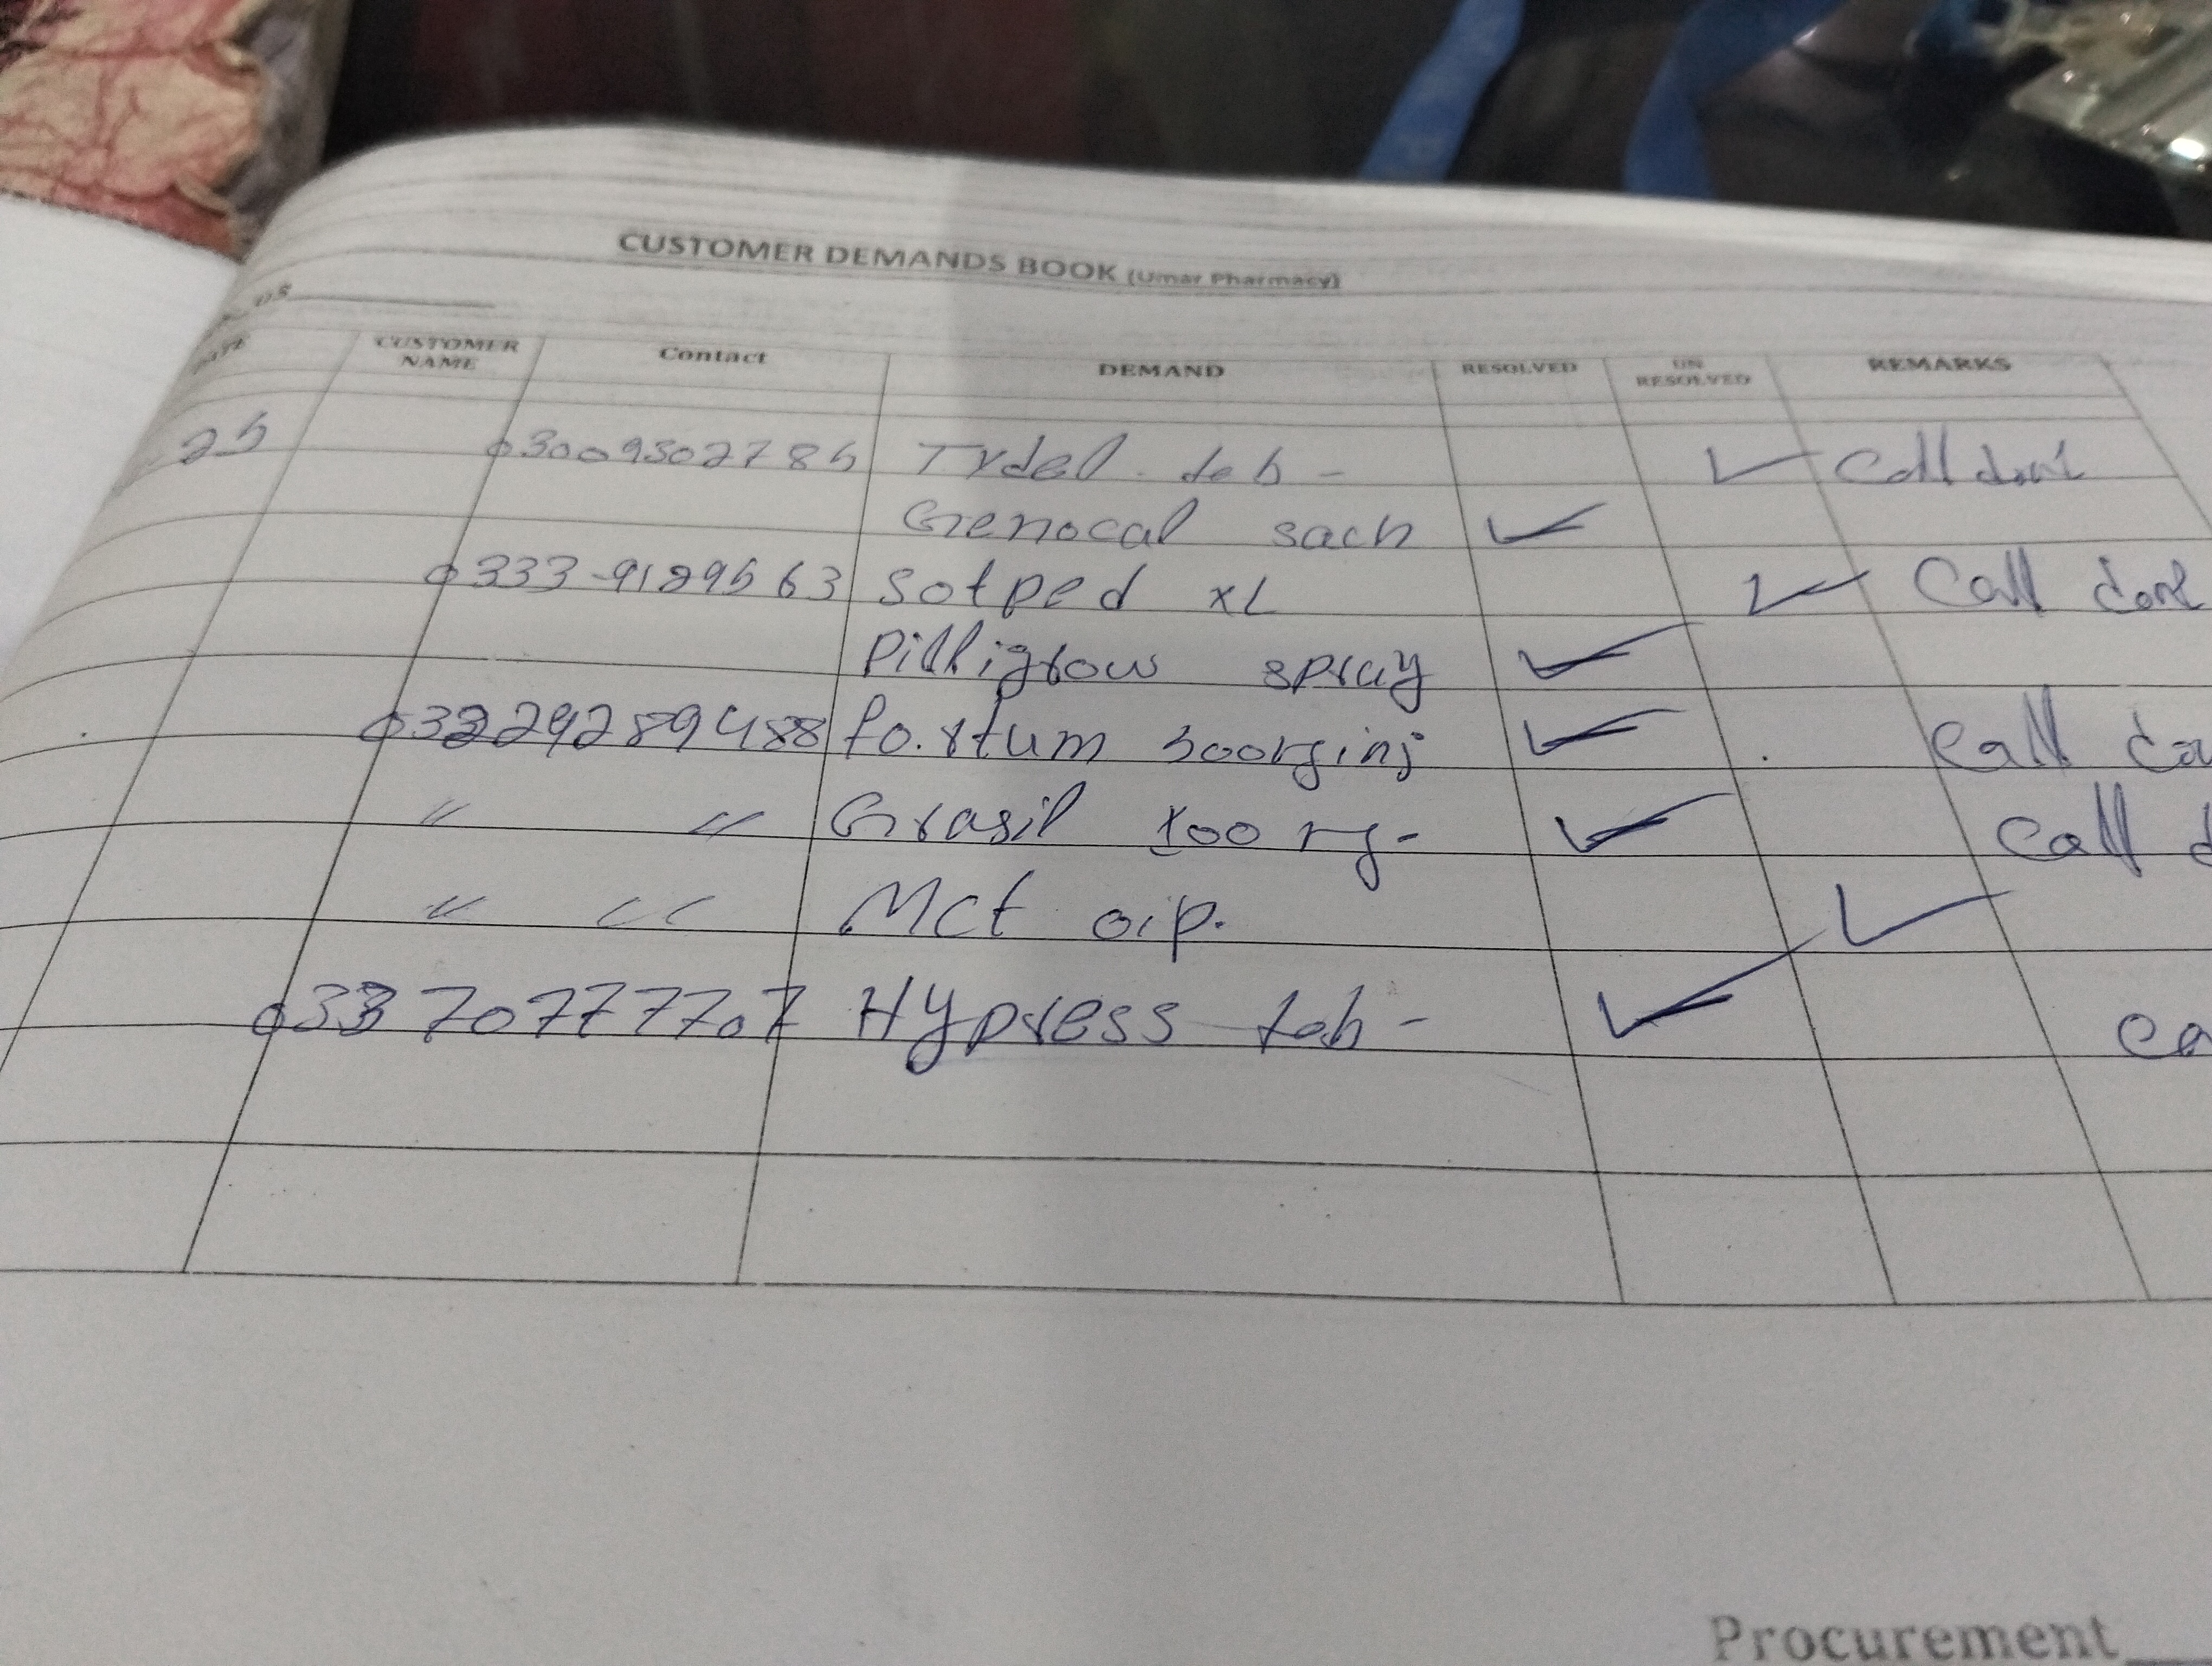 CUSTOMER DEMANDS BOOK (Umar Pharmacy)
CUSTOMER NAME Contact DEMAND RESOLVED UN RESOLVED REMARKS
25 03009302785 Tydal tab - ✓ Call done
Genocal sach ✓
0333-9189563 Sotped XL ✓ Call done
Pilligrow spray ✓
fortum 500mg inj ✓ Call
" " Grasil 100 mg- ✓ Call d
" " Mct oip. ✓
Hypress tab - ✓ ca
Procurement